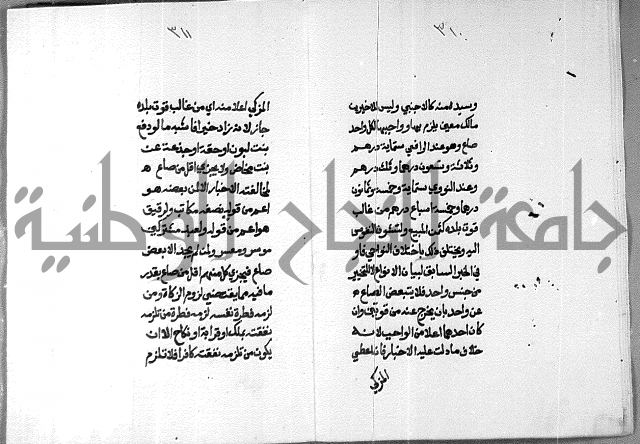 ٣١٠
وسيده منه كالاجنبي وليس للاخيرين
مالك معين يلزم بها وواجبها لكل واحد
صاع وهو عند الرافعي ستماية درهم
وثلاثة وتسعون درهما وثلث درهم
وعند النووي ستماية وخمسة وثمانون
درهما وخمسة اسباع درهم من غالب
قوت بلده لان
اليه ويختلف ذلك باختلاف النواحي فاو
في الخبر السابق لبيان الانواع لا للتخيير
من جنس واحد فلا يتبعض الصاع
عن واحد بان يخرج عنه من قوتين وان
كان احدهما اعلا من الواجب لانه
خلاف ما دلت عليه الاخبار فان اعطي
المزكي
٣١١
المزكي اعلا منه اي من غالب قوت بلده
جاز لانه زاد خيرا فاشبه ما لو دفع
بنت لبون او حقة او جذعة عن
بنت مخاض ولا يجزي اقل من صاع
لمخالفته الاخبار الا لمن بعضه هو
اعم من قوله نصفه مكاتب ولرقيق
هو اعم من قوله ولعبد مشترك بين
موسر ومعسر ولمن لم يجد الا بعض
صاع فيجزي كلا منهم اقل من صاع بقدر
ما فيه مما يقتضي لزوم الزكاة ومن
لزمه فطرة نفسه لزمه فطرة من تلزمه
نفقته بملك او قرابة او نكاح الا ان
يكون من تلزمه نفقته كافرا فلا تلزم
جامعة النجاح الوطنية